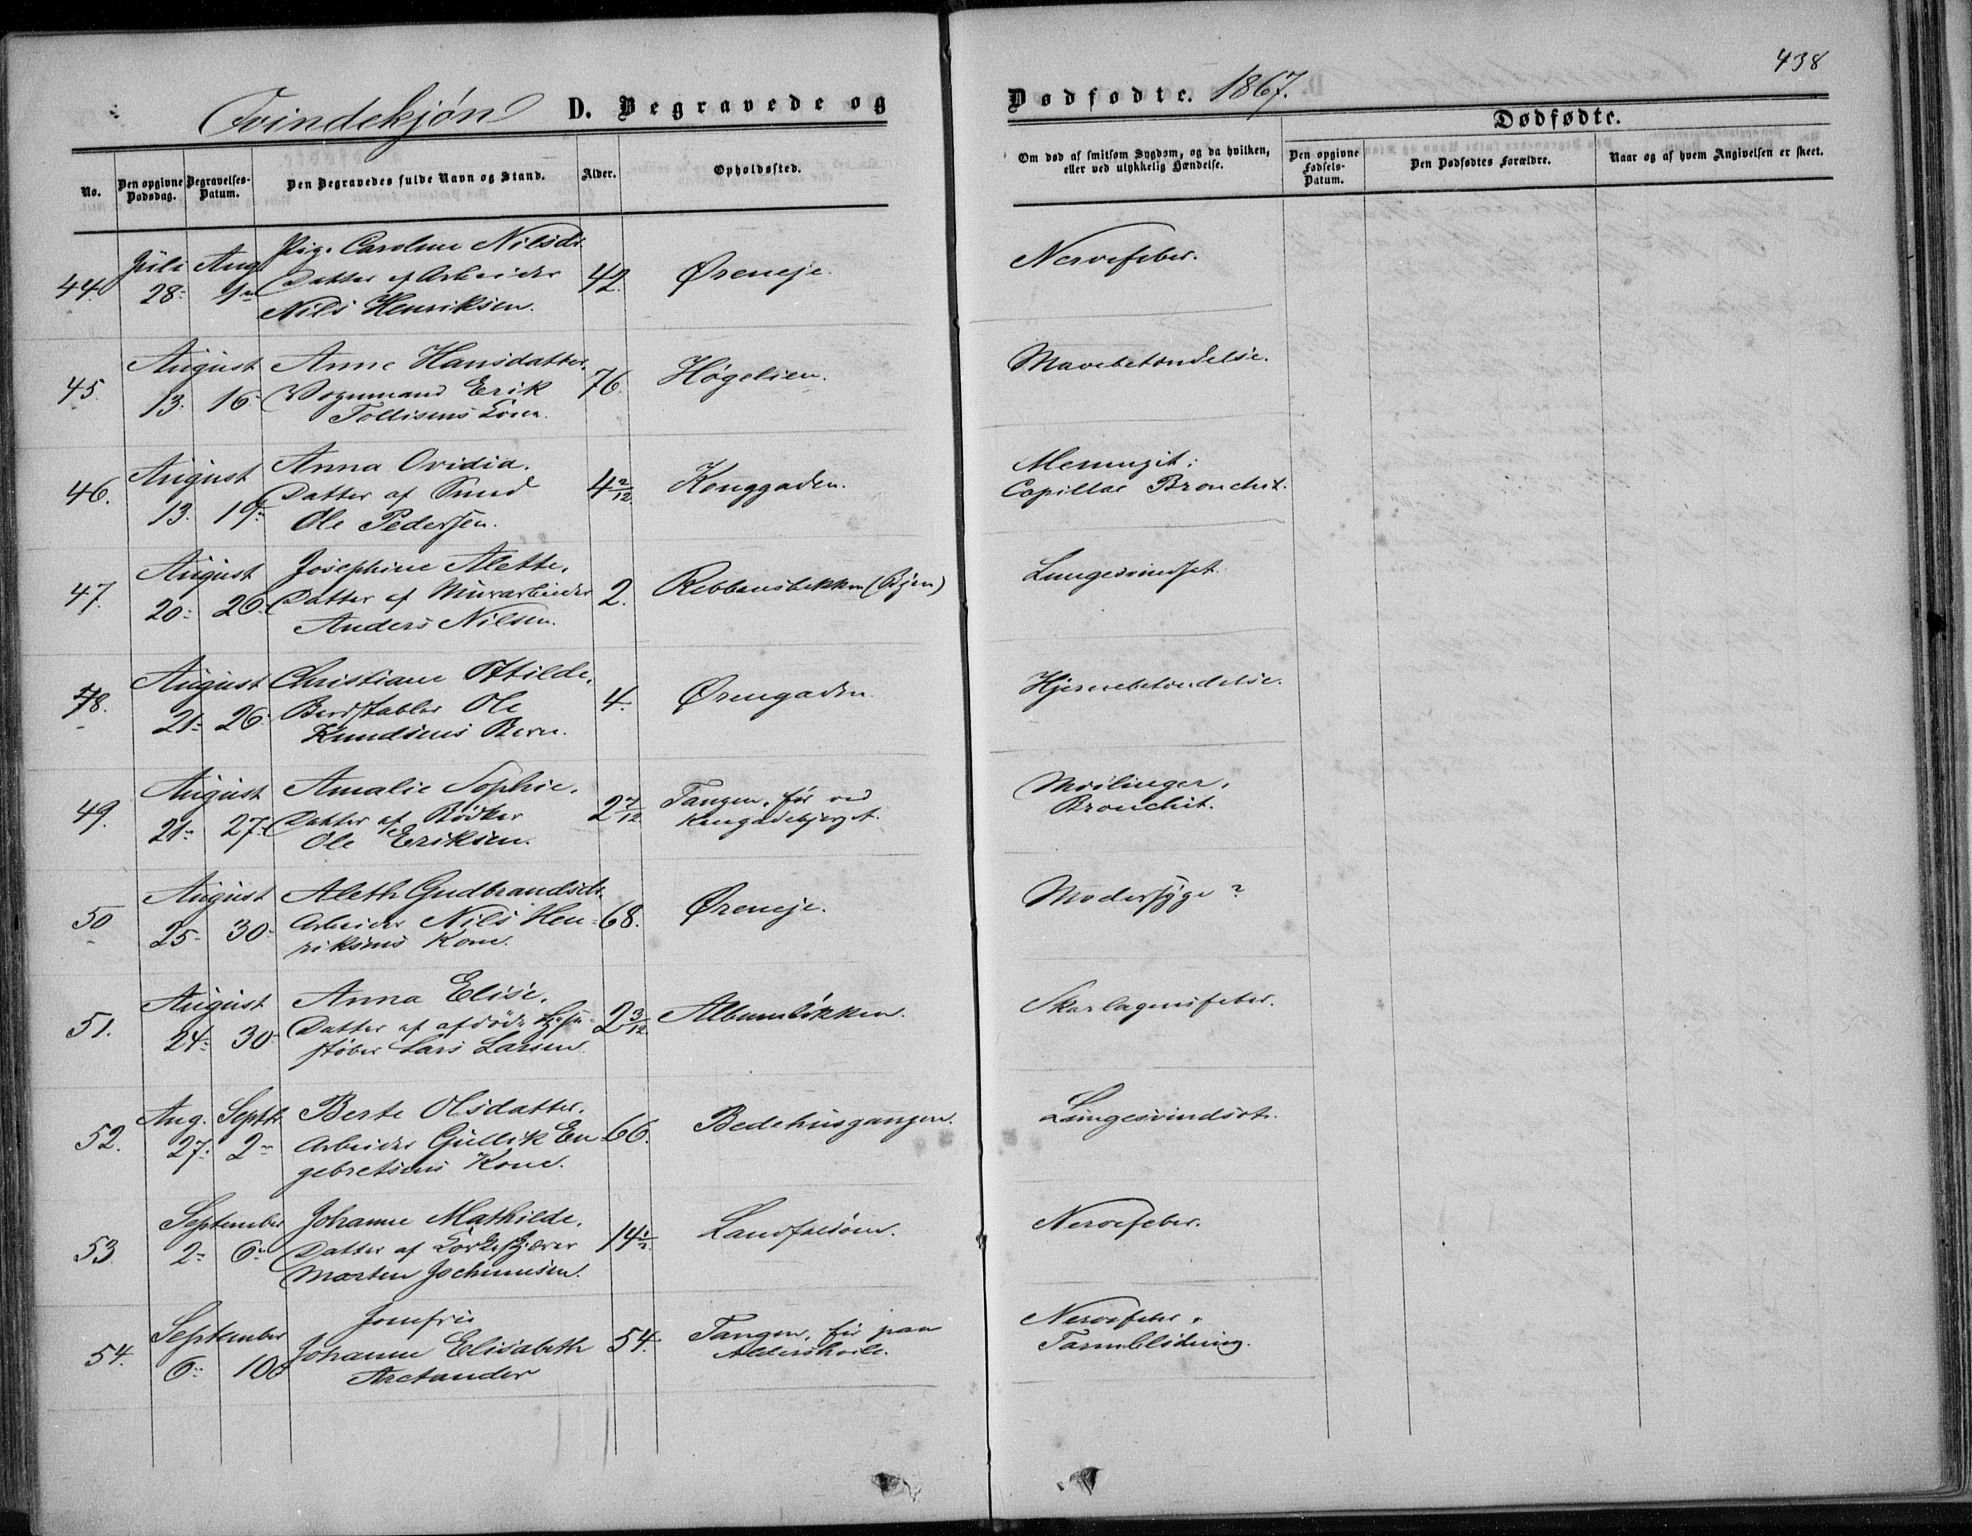 438
Qvindekjøn D. Begravede og Dødfødte. 1867.
Dødfødte.
No.
Den opgivne Dødsdag.
Begravelses-Datum.
Den Begravedes fulde Navn og Stand.
Alder.
Opholdssted.
Om død af smitsom Sygdom, og da hvilken, eller ved ulykkelig Hændelse.
Den opgivne Fødsels-Datum.
Den Dødfødtes Forældre.
Naar og af hvem Angivelsen er skeet.
44. Juli 28 Aug 1 Pige Caroline Nilsdr. 42. Øreneje. Nervefeber.
Datter af Arbeider
Nils Henriksen.
45. August 13. 16 Anne Hansdatter, 76. Høgelien. Mavebetændelse.
Vognmand Erik
Tollisens Kone.
46. August 13. 19 Anna Ovidia. 4 2/12 Konggaden. Meningit:
Datter af Smed Capillar Bronchit.
Ole Pedersen.
47. August 20 26 Josephine Alette, 2. Rebbansbekken (Byen) Lungesvindsot.
Datter af Murarbeider
Anders Nilsen.
48. August 21 26 Christiane Othilde, 4. Ørengaden. Hjernebetændelse.
Bordstabler Ole
Knudsens Barn.
49. August 21 27 Amalie Sophie, Tangen, før ved Mæslinger,
Datter af Bødker Kongadebjerget. Bronchit.
Ole Eriksen.
50 August 25 30 Aleth Gudbrandsdr. 68. Øreneje. Modersyge?
Arbeider Nils Hen-
riksens Kone.
51. August 24 30 Anna Elise, 2 3/12 Albumløkken. Skarlagensfeber.
Datter af afdøde
støber Lars Larsen.
52. Aug. 27. Septbr. 2 Berte Olsdatter, 66. Bedehusgangen. Lungesvindsot.
Arbeider Gullik En
gebretsens Kone.
53 September 2 6 Johanne Mathilde, 14 1/2 Landfaldøen. Nervefeber.
Datter af
Morten Jochumsen.
54. September 6 10 Jomfru 54. Tangen, før paa Nervefeber,
Johanne Elisabeth Aldershvile. Tarmblødning.
Arctander